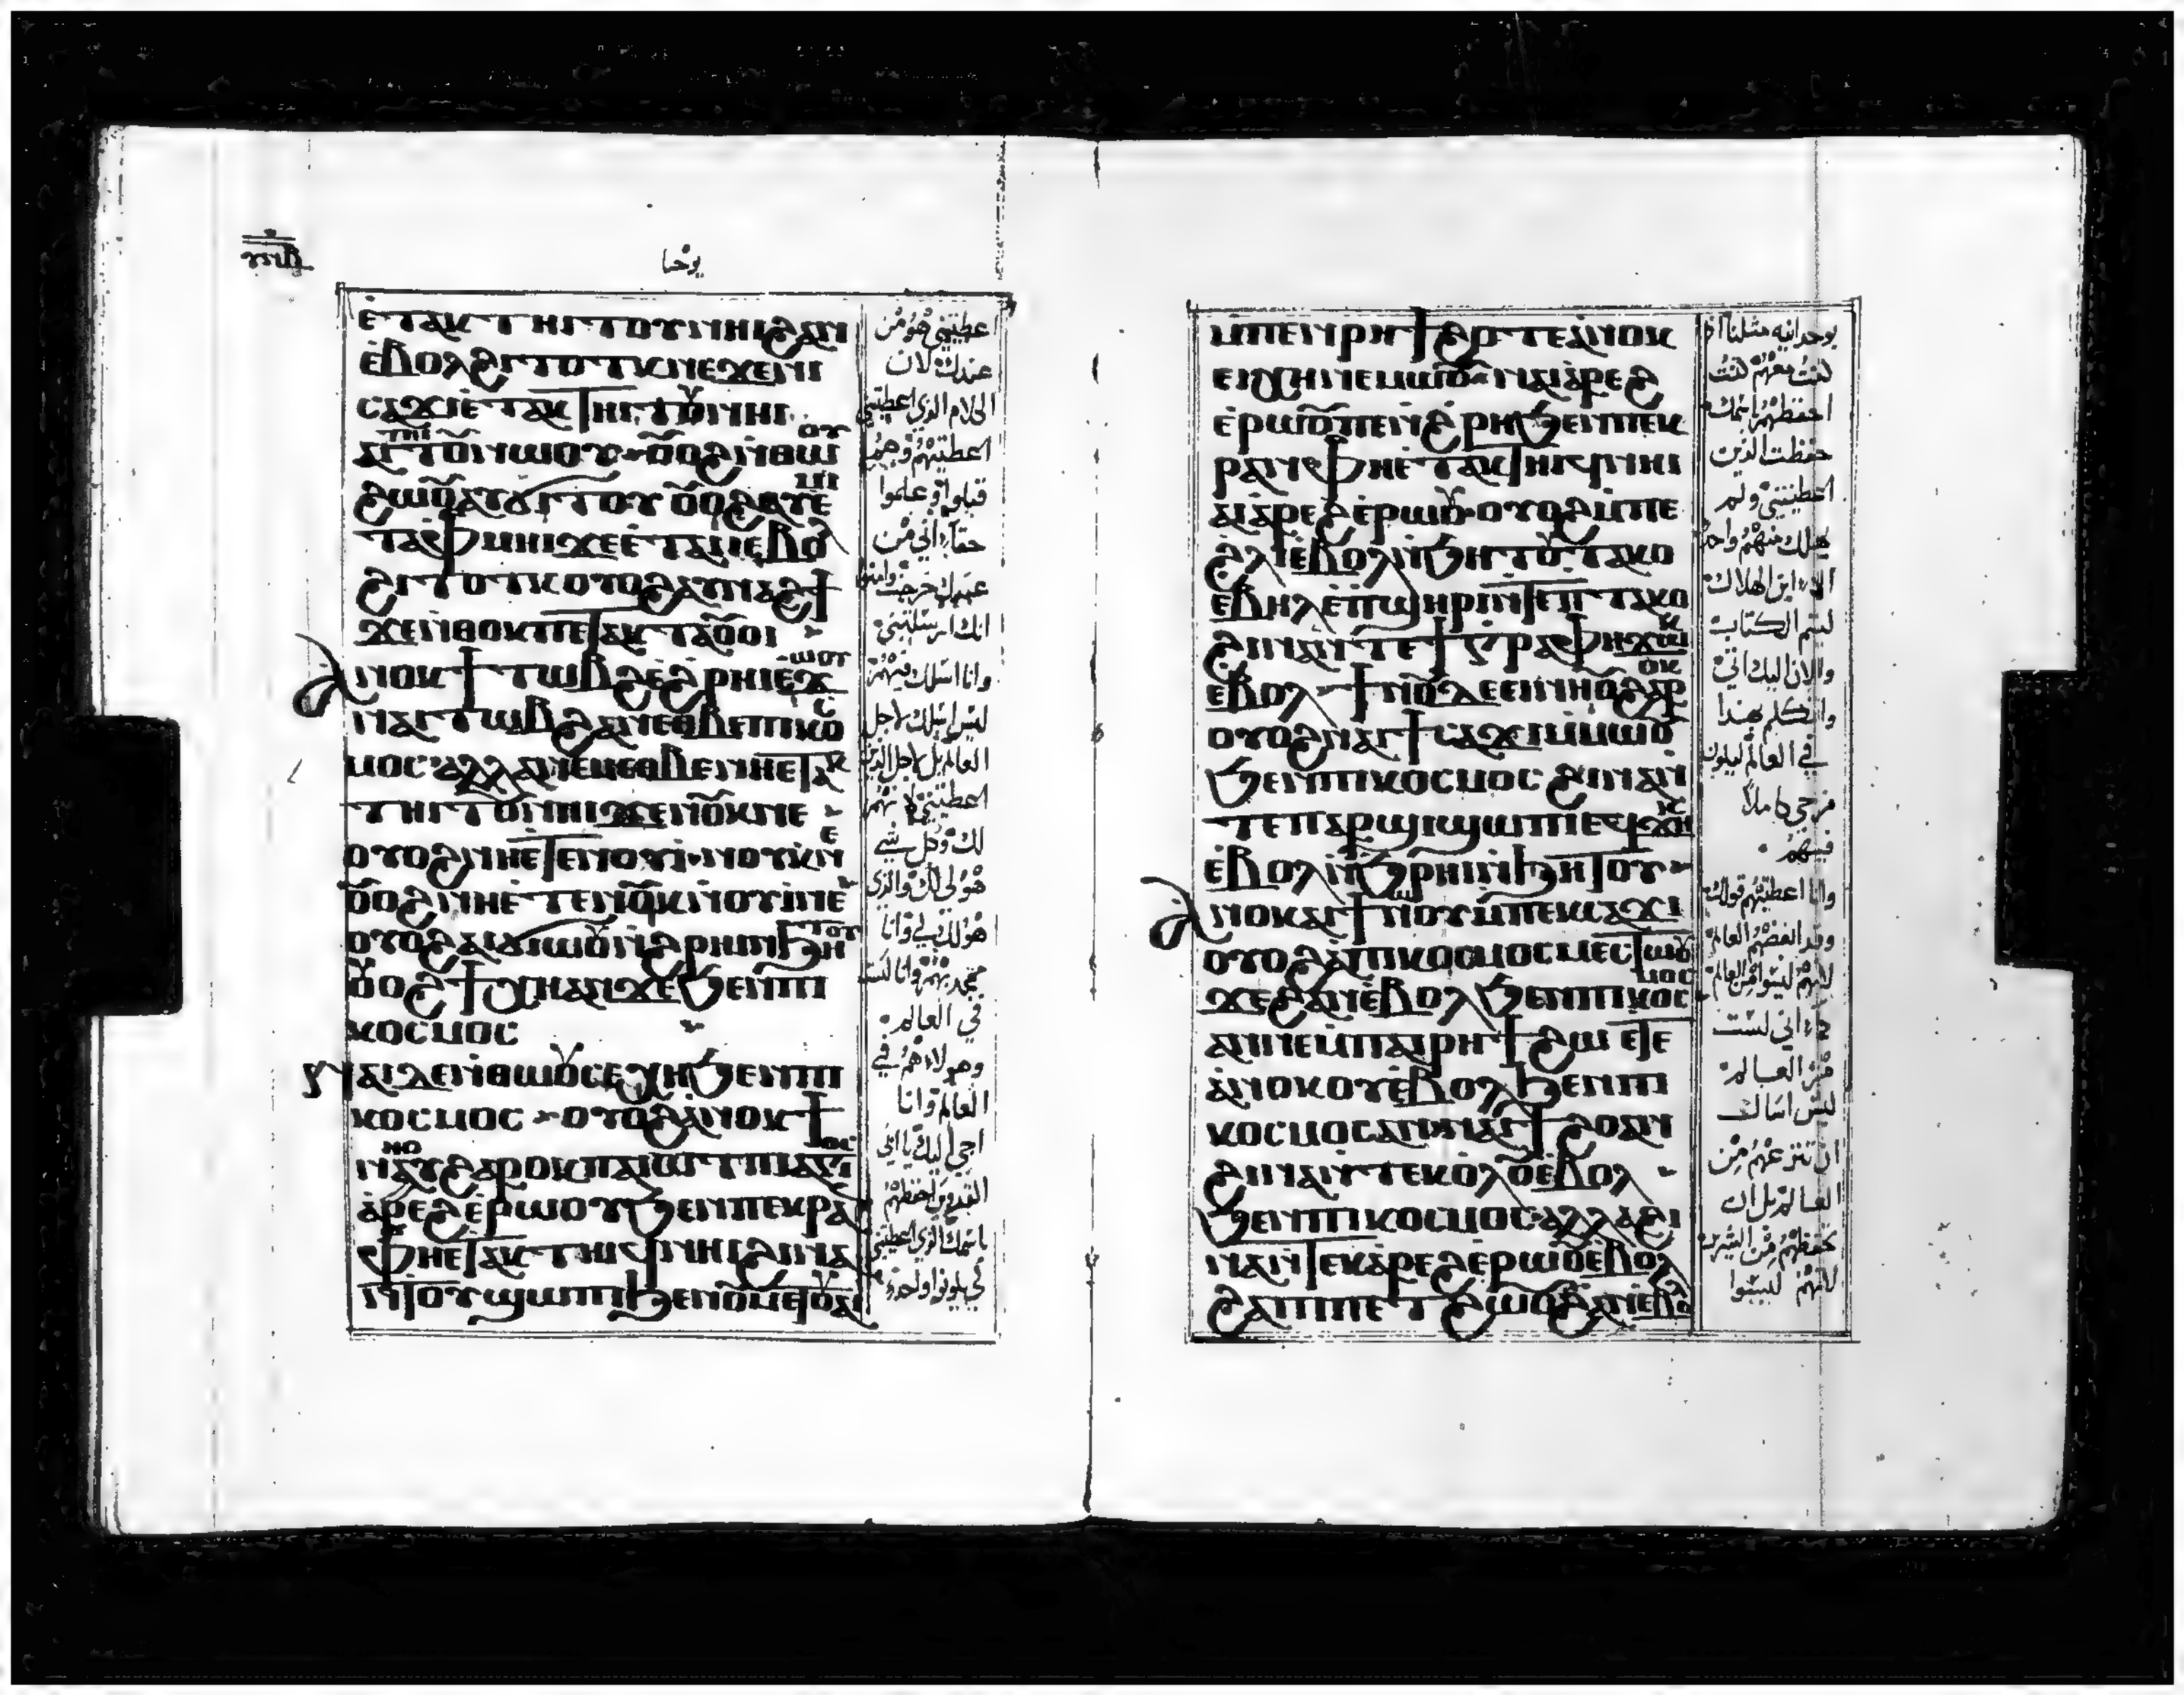 ⲩⲙⲃ
يوحنا
ⲉ̀ⲧⲁⲕⲧⲏⲓⲧⲟⲩⲛⲏⲓϩⲁⲛ
ⲉ̀ⲃⲟⲗϩⲓⲧⲟⲧⲕⲛⲉϫⲉⲛⲓ
ⲥⲁϫⲓⲉ̀ⲧⲁⲕⲧⲏⲓⲧⲟⲩⲛⲏⲓ
ⲁⲓⲧⲏⲓⲧⲟⲩⲛⲱⲟⲩ ⲟⲩⲟϩⲛ̀ⲑⲱⲟⲩ
ϩⲱⲟⲩⲁⲩϭⲓⲧⲟⲩ ⲟⲩⲟϩⲁⲩⲉⲙⲓ
ⲧⲁⲫⲙⲏⲓϫⲉⲉ̀ⲧⲁⲓⲉ̀ⲃⲟⲗ
ϩⲓⲧⲟⲧⲕⲟⲩⲟϩⲁⲩⲛⲁϩϯ
ϫⲉⲛ̀ⲑⲟⲕⲡⲉⲧⲁⲕⲧⲁⲟⲩⲟⲓ
ⲁⲛⲟⲕϯⲧⲱⲃϩⲉ̀ϩⲣⲏⲓⲉ̀ϫⲱⲟⲩ
ⲛⲁⲓⲧⲱⲃϩⲁⲛⲉⲑⲃⲉⲡⲓⲕⲟⲥ
ⲙⲟⲥ ⲁⲗⲗⲁⲛⲉⲙⲉⲑⲃⲉⲛⲏⲉⲧⲁⲕ
ⲧⲏⲓⲧⲟⲩⲛⲏⲓϫⲉⲛⲟⲩⲕⲛⲉ
ⲟⲩⲟϩⲛⲏⲉⲧⲉⲛⲟⲩⲓ ⲛⲟⲩⲕⲛⲉ
ⲟⲩⲟϩⲛⲏⲉ̀ⲧⲉⲛⲟⲩⲕ ⲛⲟⲩⲓⲛⲉ
ⲟⲩⲟϩⲁⲓϭⲓⲱⲟⲩⲛ̀ϩⲣⲏⲓⲛ̀ϧⲏⲧⲟⲩ
ⲟⲩⲟϩϯⲭⲏⲁⲛϫⲉϧⲉⲛⲡⲓ
ⲕⲟⲥⲙⲟⲥ
ⲛⲁⲓⲇⲉⲛ̀ⲑⲱⲟⲩⲥⲉⲭⲏϧⲉⲛⲡⲓ
ⲕⲟⲥⲙⲟⲥ ⲟⲩⲟϩⲁⲛⲟⲕϯ
ⲛⲏⲟⲩϩⲁⲣⲟⲕⲡⲁⲓⲱⲧⲡⲓⲁⲅⲓⲟⲥ
ⲁ̀ⲣⲉϩⲉ̀ⲣⲱⲟⲩϧⲉⲛⲡⲉⲕⲣⲁⲛ
ⲫⲏⲉⲧⲁⲕⲧⲏⲓϥⲛⲏⲓϩⲓⲛⲁ
ⲛ̀ⲧⲟⲩϣⲱⲡⲓϧⲉⲛⲟⲩⲙⲉⲧⲟⲩⲁⲓ
اعطيتني هو من
عندك لان
الكلام الذي اعطيتني
اعطيتهم وهم
قبلوا وعلموا
حقا اني من
عندك خرجت وامنوا
انك ارسلتني
وانا اسلك فيهم
ليس اسلك لاجل
العالم بل لاجل الذين
اعطيتني لانهم
لك وكل شي
هو لي لك والذي
هو لك لي وانا
ممجد بهم وانا لست
في العالم
وهولاء هم في
العالم وانا
اجي اليك يا ابي
القدوس احفظهم
باسمك الذي اعطيتني
لكي يكونوا واحدا
ⲙⲡⲉⲛⲣⲏϯϩⲟⲧⲉⲁⲛⲟⲕ
ⲉⲓⲭⲏⲛⲉⲙⲱⲟⲩ ⲛⲁⲓⲁ̀ⲣⲉϩ
ⲉ̀ⲣⲱⲟⲩⲡⲉⲛ̀ϩⲣⲏⲓϧⲉⲛⲡⲉⲕ
ⲣⲁⲛⲫⲏⲉ̀ⲧⲁⲕⲧⲏⲓϥⲛⲏⲓ
ⲁⲓⲁ̀ⲣⲉϩⲉ̀ⲣⲱⲟⲩ ⲟⲩⲟϩⲙ̀ⲡⲉ
ϩⲗⲓⲉ̀ⲃⲟⲗⲛ̀ϧⲏⲧⲟⲩ ⲧⲁⲕⲟ
ⲉⲃⲏⲗⲉ̀ⲡϣⲏⲣⲓⲛ̀ⲧⲉⲡⲧⲁⲕⲟ
ϩⲓⲛⲁⲛ̀ⲧⲉϯⲅⲣⲁⲫⲏϫⲱⲕ
ⲉⲃⲟⲗ ϯⲛⲟⲩⲇⲉⲉⲓⲛⲏⲟⲩϩⲁⲣⲟⲕ
ⲟⲩⲟϩⲛⲁⲓϯⲥⲁϫⲓⲙ̀ⲙⲱⲟⲩ
ϧⲉⲛⲡⲓⲕⲟⲥⲙⲟⲥ ϩⲓⲛⲁⲛ
ⲧⲉⲡⲁⲣⲁϣⲓϣⲱⲡⲓⲉϥϫⲏⲕ
ⲉ̀ⲃⲟⲗⲛ̀ϩⲣⲏⲓⲛ̀ϧⲏⲧⲟⲩ
ⲁⲛⲟⲕⲁⲓϯⲛⲱⲟⲩⲙ̀ⲡⲉⲕⲥⲁϫⲓ
ⲟⲩⲟϩⲁⲡⲓⲕⲟⲥⲙⲟⲥⲙⲉⲥⲧⲱⲟⲩ
ϫⲉϩⲁⲛⲉ̀ⲃⲟⲗϧⲉⲛⲡⲓⲕⲟⲥⲙⲟⲥ
ⲁⲛⲛⲉⲙ̀ⲡⲁⲓⲣⲏϯϩⲱ ⲉⲧⲉ
ⲁ̀ⲛⲟⲕⲟⲩⲉ̀ⲃⲟⲗϧⲉⲛⲡⲓ
ⲕⲟⲥⲙⲟⲥⲁⲛⲛⲁⲓϯϩⲟⲁⲛ
ϩⲓⲛⲁⲛ̀ⲧⲉⲕⲟⲗⲟⲩⲉⲃⲟⲗ
ϧⲉⲛⲡⲓⲕⲟⲥⲙⲟⲥⲁⲗⲗⲁϩⲓ
ⲛⲁⲛ̀ⲧⲉⲕⲁ̀ⲣⲉϩⲉ̀ⲣⲱⲟⲩⲉⲃⲟⲗ
ϩⲁⲡⲓⲡⲉⲧϩⲱⲟⲩϩⲁⲛⲉⲃⲟⲗ
بوحدانيه مثلنا اذ
كنت معهم كنت
احفظهم باسمك
حفظت الذين
اعطيتني ولم
يهلك منهم واحد
الا ابن الهلاك
ليتم الكتاب
والان اليك اتي
واتكلم بهذا
في العالم ليكون
فرحي كاملا
فيهم
وانا اعطيتهم قولك
وقد ابغضهم العالم
لانهم ليسوا من العالم
كما اني لست
من العالم
ليس اسالك
ان تنزعهم من
العالم بل ان
تحفظهم من الشرير
لانهم ليسوا